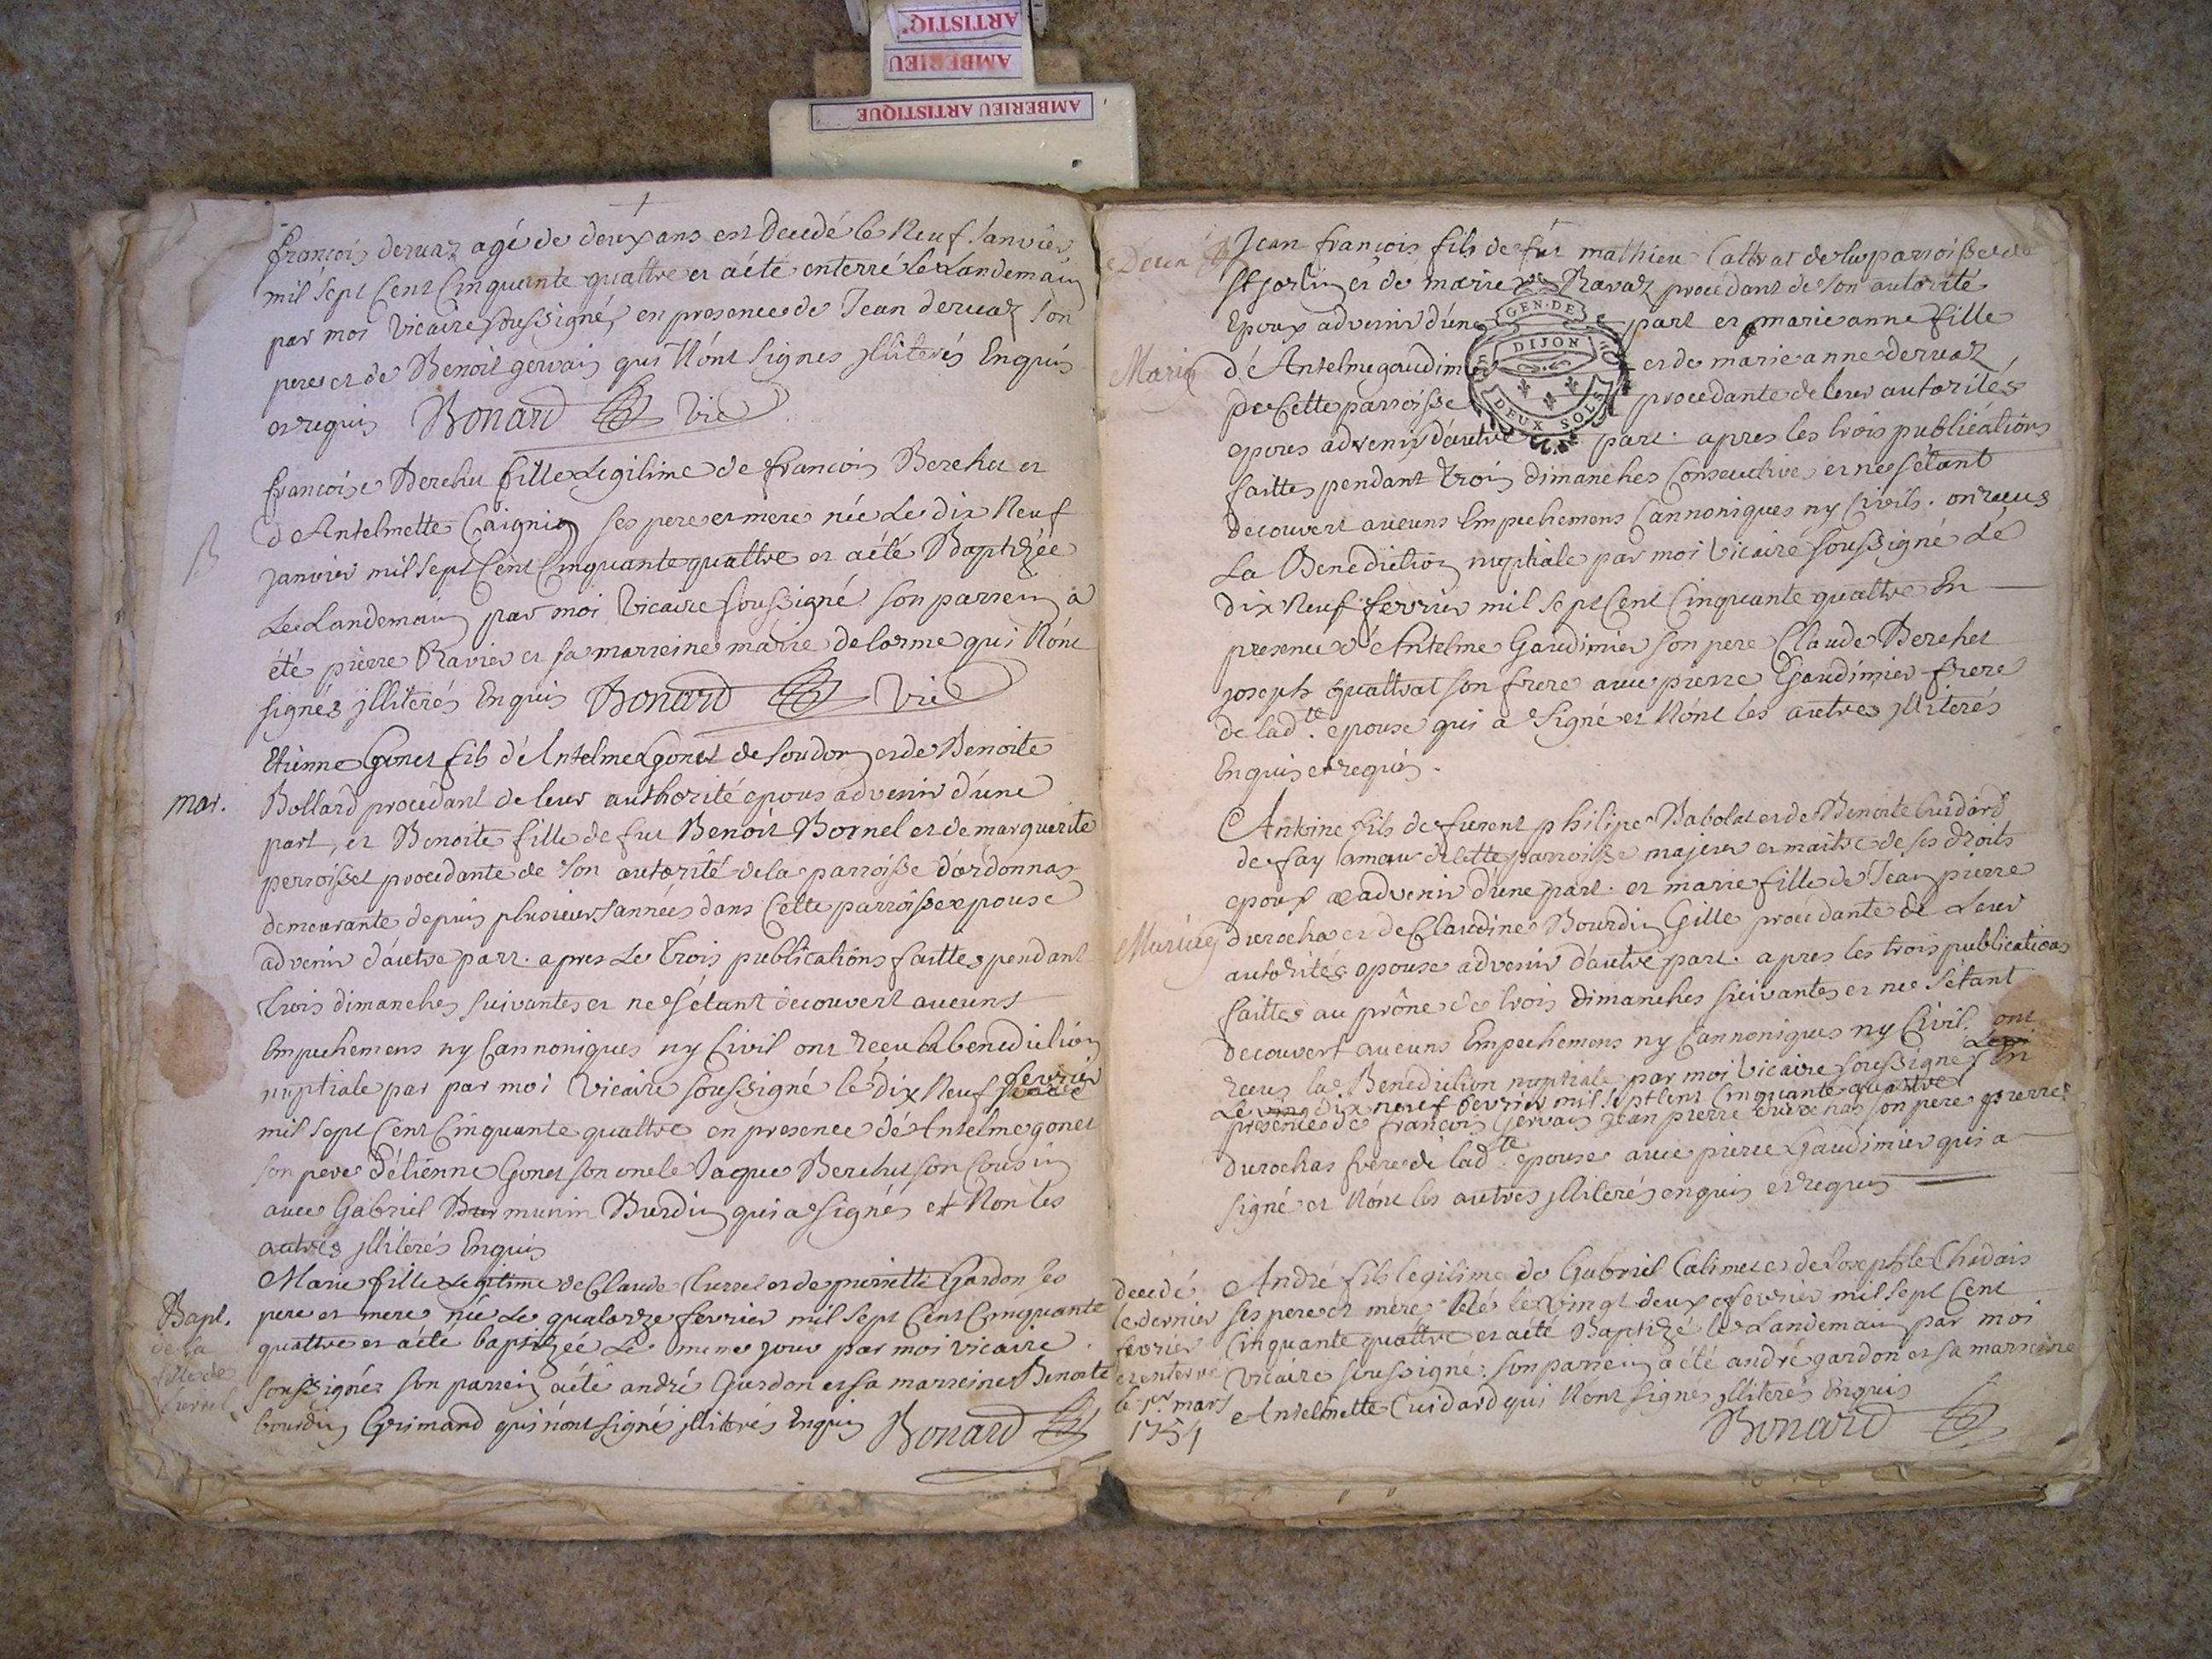 ARTISTIQ
AMBERIEU
AMBERIEU ARTISTIQUE
françois dervaz agé de deux ans est Decedé le Neuf Janvier
mil sept Cent Cinquante quattre et aété enterré Le Landemain
par moi Vicaire soussigné, en presence de Jean dervaz son
pere et de Benoit gervais qui Nónt signes jlliterés Enquis
et requis Bonard Vic
françoise Berchu fille Legitime de francois Berchu et
B
d'Antelmette Caignin ses pere et mere née Le dix Neuf
janvier mil sept Cent Cinquante quattre et aété Baptizée
Le Landemain par moi Vicaire soussigné son parrein a
été pierre Ravier et sa marreine marie delorme qui Nónt
signés jlliterés Enquis Bonard Vic
Etienne Gonet fils d'Antelme Gonet de Soudon et de Benoite
mar.
Bollard procedant de leur authorité epoux advenir d'une
part, et Benoite fille de fut Benoit Bornel et de marguerite
perroisset procedante de son autorité de la parroisse d'ordonnas
demeurante depuis plusieurs années dans Cette parroisse epouse
advenir d'autre part. apres Le Trois publications faittes pendant
trois dimanches suivantes et ne s'étant decouvert aucuns
Empechemens ny Cannoniques ny Civil ont receu la benediction
nuptiale par par moi Vicaire soussigné le dix Neuf fevrier
mil sept Cent Cinquante quattre en presence dé Antelme gonet
son pere d'étienne Gonet son oncle Jaque Berchut son Cousin
avec Gabriel munin Burdin qui a signés et Non les
autres jlliterés Enquis
Marie fille Legitime de Claude Curvel et de pierrette Gardon ses
Bapt.
de la
fille de
Curvel
pere et mere née Le quatorze fevrier mil sept Cent Cinquante
quattre et aété baptizéé Le meme jour par moi vicaire
soussigné son parrein aété andré Gardon et sa marreine Benoite
bourdin Grimand qui nónt signés jlliterés Enquis Bonard
Jean françois fils de fut mathieu Cattrat de la parroisse de
St sorlin et de marie Ravaz procédant de son autorité
Epoux advenir d'une part et marie anne fille
Mariag
GEN. DE
DIJON
DEUX SOLS
d'Antelme gaudimier et de marie anne dervaz
de Cette parroisse procedante de leur autorités
epouse advenir d'autre part. apres les trois publications
faittes pendant trois dimanches Consecutives et ne s'étant
decouvert aucuns Empechemens Cannoniques ny Civils. on reçus
La Benediction nuptiale par moi Vicaire soussigné Le
dix Neuf fevrier mil sept Cent Cinquante quattre En
presence d'Antelme Gaudimier son pere Claude Berchet
joseph quattrat son frere avec pierre Gaudimier frere
de ladte. epouse qui a signé et Nónt les autres jlliterés
Enquis et requis.
Antoine fils de furent philipe Babolat et de Benoite Cuidard
de fay ameau de Cette parroisse majeur et maitre de ses droits
epoux advenir d'une part. et marie fille de Jean pierre
Mariag
durochas et de Claudine Bourdin Gille procedante de Leur
autorités epouse advenir d'autre part. apres les trois publications
faittes au prône de trois dimanches suivantes et ne s'étant
decouvert aucuns Empechemens ny Cannoniques ny Civil. ont
receu la Benediction nuptiale par moi Vicaire soussigné En
Le dix neuf fevrier mil sept Cent Cinquante quattre
presence de françois Gervais Jean pierre durochas son pere pierre
durochas frere de ladte. epouse avec pierre Gaudimier qui a
signé et Nónt les autres jlliterés enquis et requis
decedé
le dernier
fevrier
et enterré
le 1er. mars
1754
André fils legitime de Gabriel Calimet et de Josephte Chadais
ses pere et mere Né le Vingt deux fevrier mil sept Cent
Cinquante quattre et aété Baptizé le Landemain par moi
Vicaire soussigné: son parrein a été andré gardon et sa marreine
Antelmette Cuidard qui Nónt signés jlliterés Enquis
Bonard